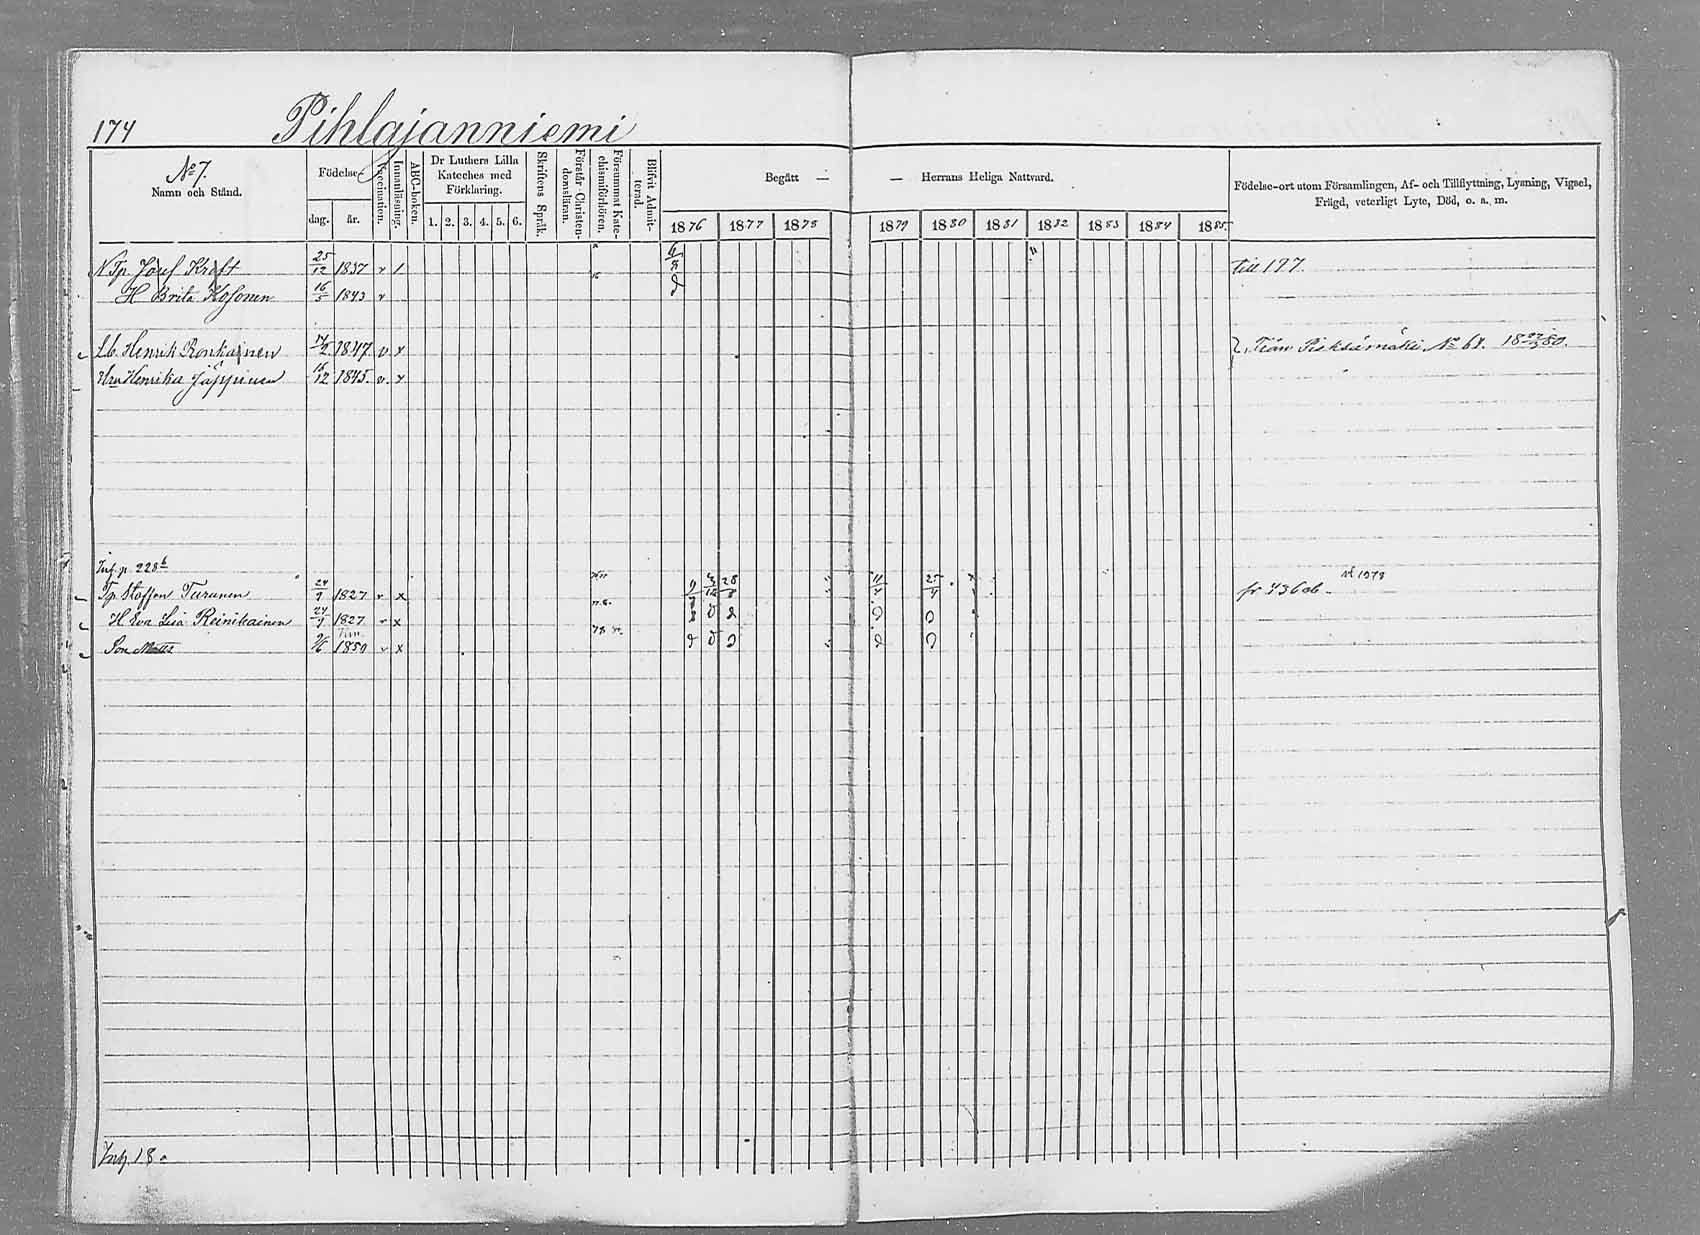 174 Pihlajanniemi
No 7.
Namn och Stånd.
Födelse-
dag. år.
Vaccination.
Innanläsning.
ABC-boken.
Dr Luthers Lilla Kateches med Förklaring.
1. 2. 3. 4. 5. 6.
Skriftens Språk.
Förstår Christendomsläran.
Försummat Katechismiförhören.
Blifvit Admitterad.
Begått — — Herrans Heliga Nattvard.
1876 1877 1878 1879 1880 1881 1882 1883 1884 1885
Födelse-ort utom Församlingen, Af- och Tillflyttning, Lysning, Vigsel,
Frägd, veterligt Lyte, Död, o. a. m.
N Tp. Josef Kraft 25/12 1837 v / till 177.
H Brita Kosonen 16/5 1843 v
Lb. Henrik Ronkainen 1847. v x Från Pieksämäki No 64. 1880.
Hru Henrika Jäppinen 16/12 1845. v. x
Inh. p. 228
Tp. Staffen Turunen 24/9 1827 v x 28/8 11/4 25/4 fr 436 1878
H Eva Lisa Reinikainen 24/9 1827 v x
Son Matts 9/6 1850 v x
Inh. 18